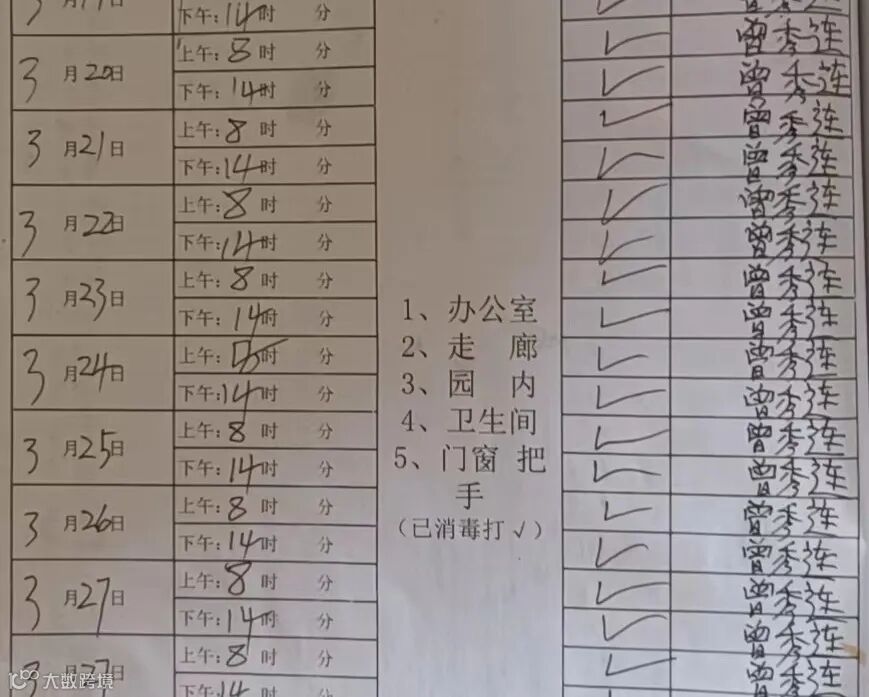 下午:14时 分
上午:8时 分 ✓ 曾秀连
3月20日
下午:14时 分 ✓ 曾秀连
上午:8时 分 ✓ 曾秀连
3月21日
下午:14时 分 ✓ 曾秀连
上午:8时 分 ✓ 曾秀连
3月22日
下午:14时 分 ✓ 曾秀连
上午:8时 分 ✓ 曾秀连
3月23日
下午:14时 分 ✓ 曾秀连
上午: 时 分 ✓ 曾秀连
3月24日
下午:14时 分 ✓ 曾秀连
上午:8时 分 ✓ 曾秀连
3月25日
下午:14时 分 ✓ 曾秀连
上午:8时 分 ✓ 曾秀连
3月26日
下午:14时 分 ✓ 曾秀连
上午:8时 分 ✓ 曾秀连
3月27日
下午:14时 分 ✓ 曾秀连
上午:8时 分 ✓ 曾秀连
3 27日
下午:14时 分 曾秀连
1、办公室
2、走 廊
3、园 内
4、卫生间
5、门窗 把
手
(已消毒打√)
大数跨境